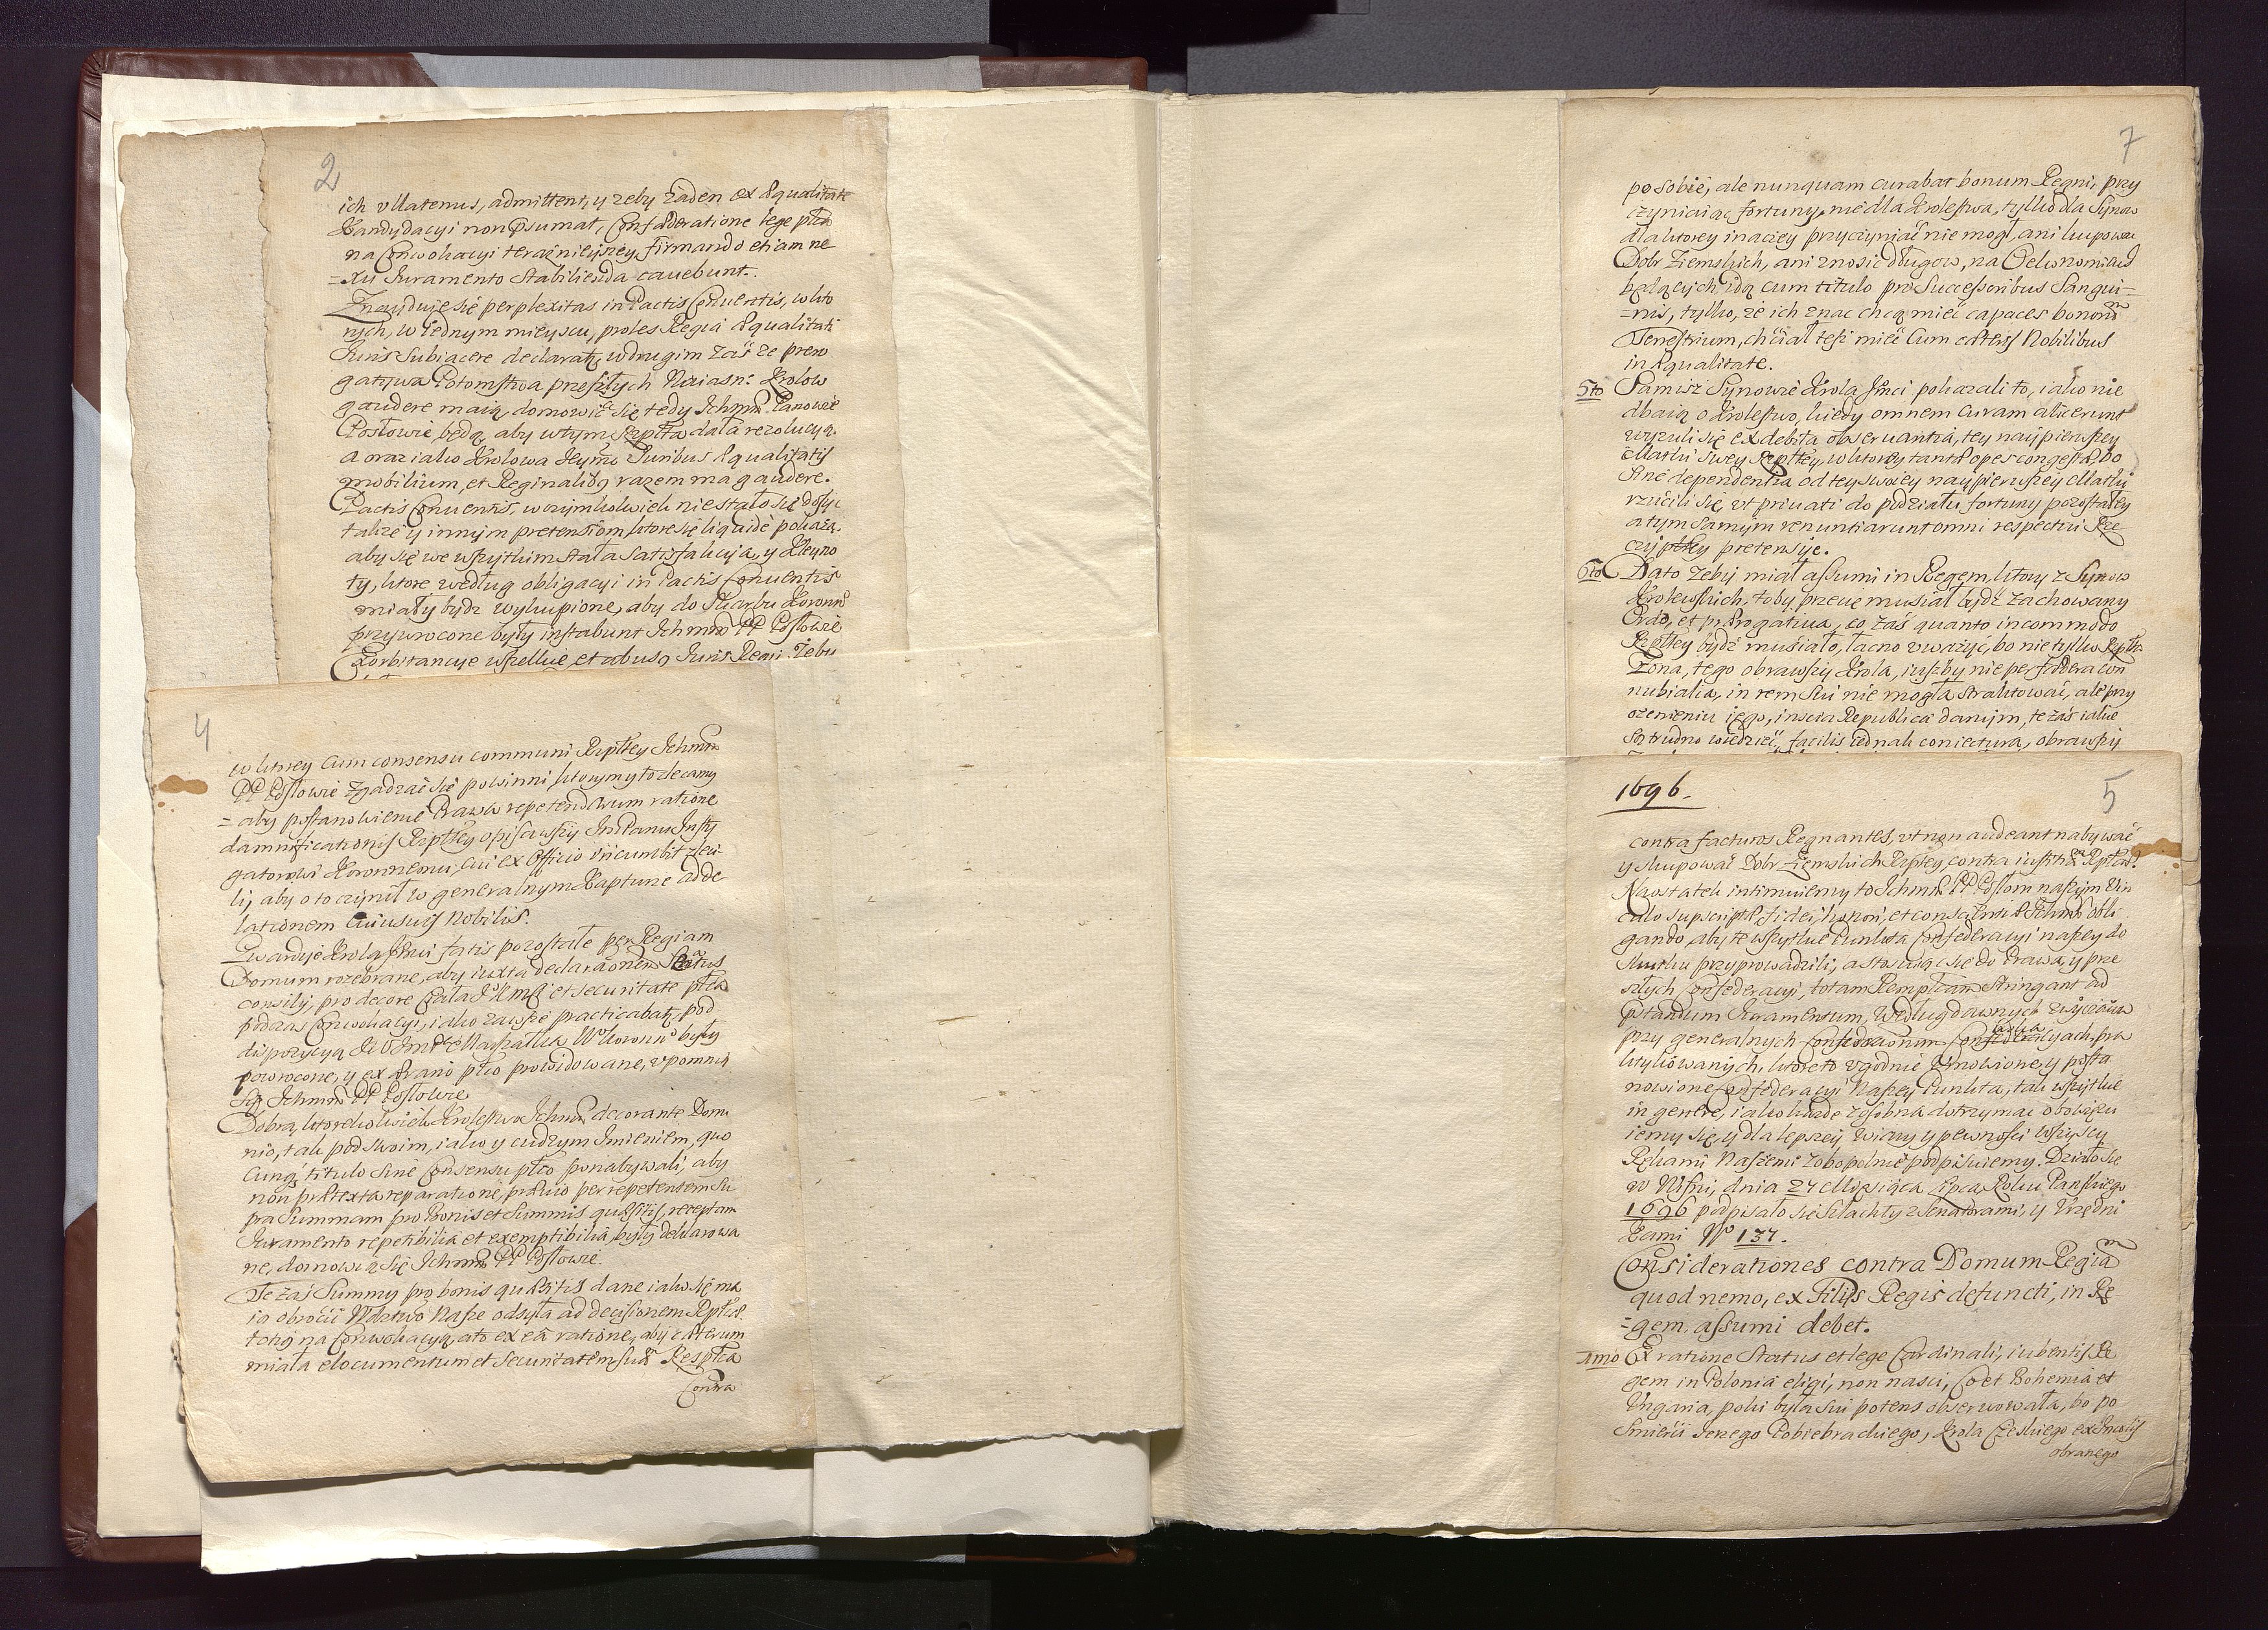 2
ich vllatenus, admittent, y zeby żaden ex Æqualitate
Kandydacyi non Psumat, Confæderatione lege ptca
na Conwokacyi teraznieyszey firmando etiam ne
=xu Iuramento Stabilienda cauebunt.
Znayduje się perplexitas in Pactis Conuentis, w kto
rych, w iednym mieyscu, proles Regia Æqualitati
Iuris Subiacere declarat, w drugim zaś ze prero
gatywa Potomstwa przeszłych Naiasn: Krolow
gaudere maią, domowić się tedy Ichmm Panowie
Posłowie będą, aby w tym Rzplta dała rezolucyą.
a oraz iako Krolowa Jeymć Iuribus Æqualitatis
mobilium, et Reginalibq razem ma gaudere.
Pactis Conuentis, w czymkolwiek nie stało się dosyć
także y innym pretensiom ktore się liquidè pokażą,
aby się we wszytkim stała Satisfakcya, y Kleyno
ty, ktore według obligacyi in Pactis Conuentis
miały bydz wykupione, aby do Skarbu Koronno
przywrocone były instabunt Ichmm PP Posłowie
Exorbitancye wszelkie, et abusq Iuris Regni. Zeby
4
w ktorey cum consensu communi Rzpltey Ichmm
PP Posłowie zgadzać się powinni, ktorym y to zlecamy
= aby postanowienie Praw repetendarum ratione
damnificationis Rzpltey opisawszy Im Panu Insty
gatorowi Koronnemu, cui ex Officio incumbit zleci
li, aby o to czynił w generalnym Kapturze ad de
lationem cuiusuis Nobilis.
Gwardye Krola Jmci satis pozostałe per Regiam
Domum rozebrane, aby iuxta declaraonem Senatus
consilij, pro decore Ciała JoKmści et securitate ptca
podczas Conwokacyi, iako zawsze practicabat, pod
dispozycyą JeoJmści Marszałka Wo Koronno były
powrocone, y ex Ærario ptco prowidowane, vpomnią
się Ichmm PP Posłowie
Dobra, ktorekolwiek Krolestwa Ichmm decorante Domi
nio, tak pod swoim, iako y cudzym Imieniem, quo
cunq; titulo sine Consensu ptco ponabywali, aby
non prætexta reparatione, præuio per repetentem Su
pra Summam pro Bonis et Summis quæsitis, receptam
Iuramento repetibilia et exemptibilia, były deklarowa
ne, domowią się Ichmm PP Posłowie.
Te zaś Summy pro bonis quæsitis dane iako się ma
ią obrocić Wdztwo Nasze odsyła ad decisionem Rzpltes
totq na Conwokacyą, a to ex ea ratione, aby in posterum
miała documentum et Securitatem suæ Resptca
Contra
7
po sobie, ale nunquam curabat bonum Regni, przy
czyniaiąc fortuny, nie dla Krolestwa, tylko dla Synow
dla ktorey inaczey przyczyniać nie mogł, ani kupować
Dobr Ziemskich, ani znosić długow, na Oekonomiach
będących, idą cum titulo pro Successoribus Sangui=
=nis, tylko, że ich znac chcą mieć capaces bonorum
Terrestrium, chciał też mieć cum cæteris Nobilibus
in Æqualitate.
5to Samiż Synowie Krola Jmci pokazali to, iako nie
dbaią o Krolestwo, kiedy omnem curam abiecerunt
wyzuli się ex debita obseruantia, tey naypierwszey
Matki swey Rzpltey, w ktorey tantæ opes congestæ, bo
sine dependentia od tey swoiey naypierwszey Matki
rzucili się vt priuati do podziału fortuny pozostałey
a tym samym renuntiarunt omni respectui Rze
czyptey pretensye.
6to Dato żeby miał assumi in Regem, ktory z Synow
Krolewskich, toby przecię musiał bydź zachowany
Ordo, et prærogatiua, co zaś quanto incommodo
Rzpltey bydź musiało, łacno vważyć, bo nie tylko Rzplta
Zona, tego obrawszy Krola, iużby nie per fædera con
nubialia, in rem sui nie mogła traktować, ale przy
ożenieniu iego, inscia Republica danym, te zaś iakie
są trudno wiedzieć, facilis iednak coniectura, obrawszy
1696.
5
contra facturos Regnantes, vt non audeant nabywać
y skupować Dobr Ziemskich Rzpltey, contra iustitiæ Rzpltes.
Naostatek intimuiemy to Ichmm PP Posłom naszym Vin
culo supscriptæ fidei, honori, et conscientiæ Ichmm obli
gando, aby te wszytkie Punkta Confederacyi naszey do
skutku przyprowadzili, a stosuiąc się do Prawa, y prze
szłych Confederacyi, totam Remptcam stringant ad
pstandum Iuramentum, według dawnych zwyczaiow
przy generalnych Confederaonum Confederacyach, pra
ktykowanych, ktore to zgodnie vmowione, y posta
nowione Confederacyi Naszey Punkta, tak wszytkie
in genere, iako każde z osobna dotrzymać obowiązu
iemy się, y dla lepszey wiary y pewności wszyscy
Rękami Naszemi zobopolnie podpisuiemy. Działo się
w Wiszni, dnia 24 Miesiąca Lipca, Roku Panskiego
1696 podpisało się Slachty z Senatorami, y Vrzędni
kami No 137.
Considerationes contra Domum Regiam
quod nemo, ex Filijs Regis defuncti, in Re
=gem assumi debet.
1mo Ex ratione Status et lege Cardinali, iubentis Re
gem in Polonia eligi, non nasci, Co et Bohemia et
Vngaria, poki była Sui potens obserwowała, bo po
Smierci Jerzego Podiebrackiego, Krola Czeskiego ex Incolis
obranego